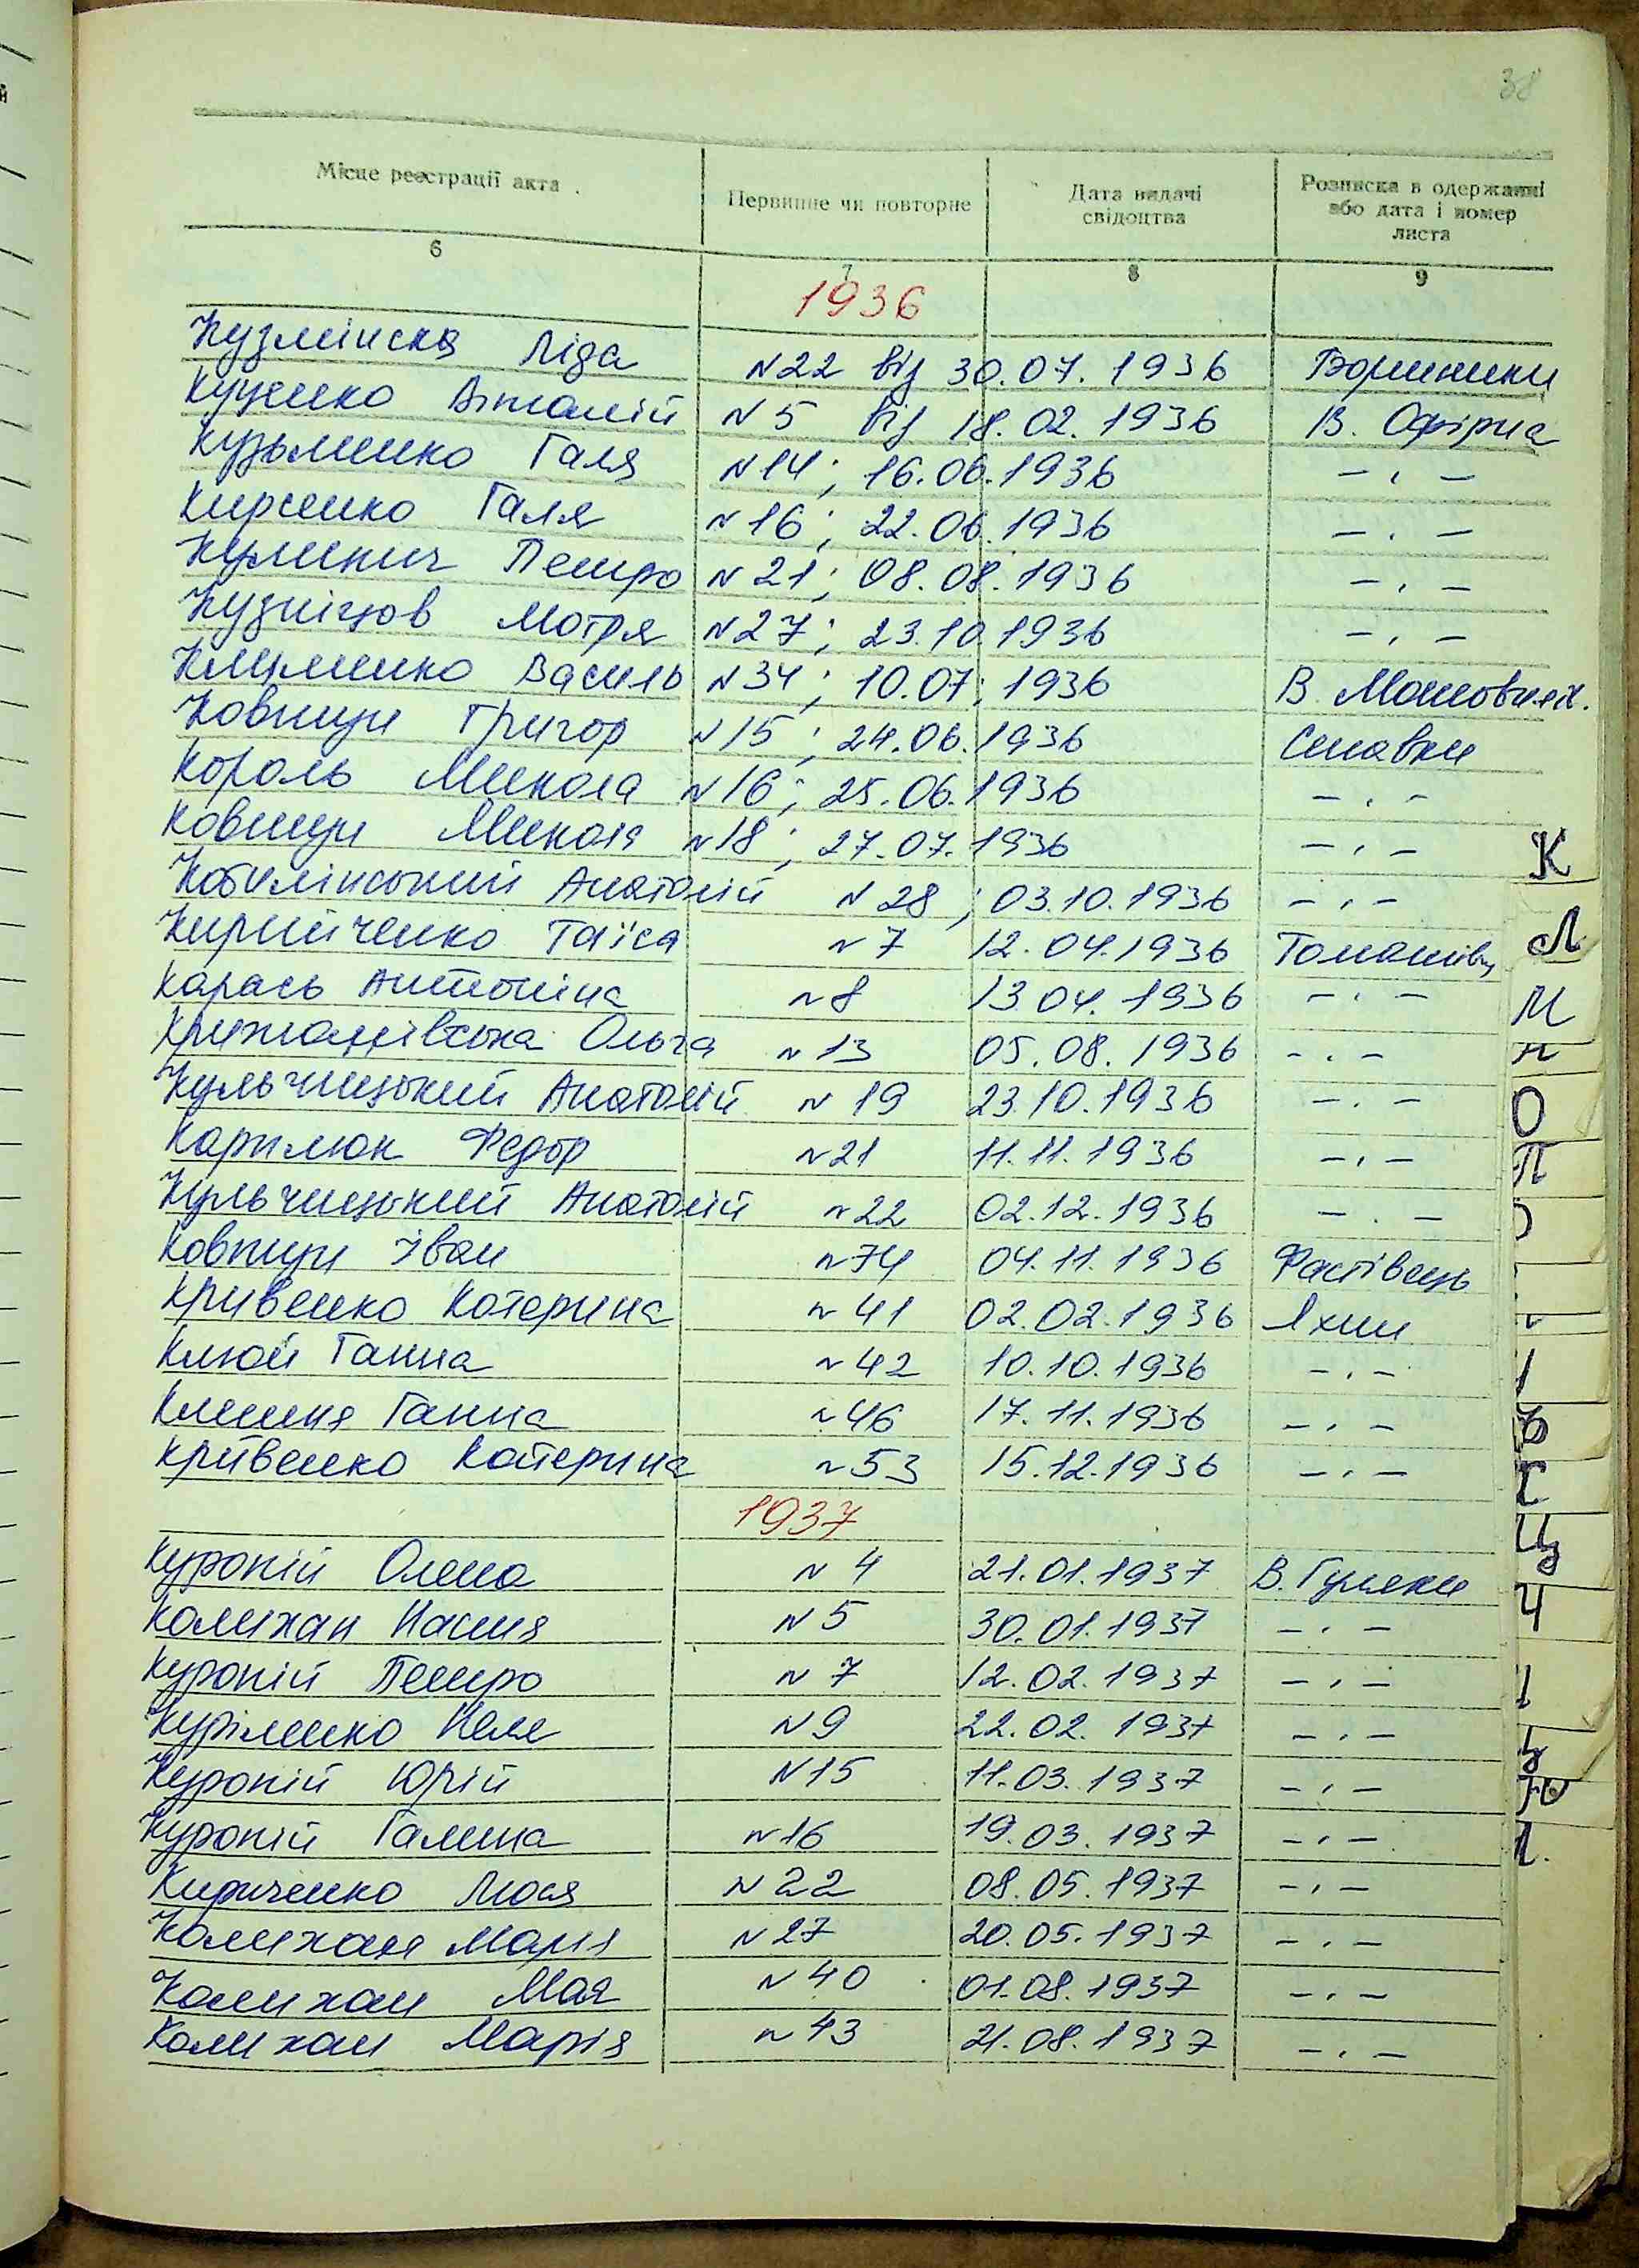 38
Місце реєстрації акта
Первинне чи повторне
Дата видачі свідоцтва
Розписка в одержанні або дата і номер листа
6 7 8 9
1936
Кузмінска Ліда N22 від 30.07.1936
Куценко Віталій N5 від 18.02.1936 В. Офірна
Кузьменко Галя N14; 16.06.1936 – " –
Кирсенко Галя N16; 22.06.1936 – " –
Кулинич Петро N21; 08.08.1936 – " –
Кузніцов Мотря N27; 23.10.1936 – " –
Клименко Василь N34; 10.07.1936 В. Мотовил.
Ковтун Григор N15; 24.06.1936 Снавки
Король Микола N16; 25.06.1936 – " –
Ковтун Микола N18; 27.07.1936 – " –
Кобилінський Анатолій N28; 03.10.1936 – " –
Кирийченко Таїса N7 12.04.1936 Томашівц
Карась Антоніна N8 13.04.1936 – " –
Крижанівська Ольга N13 05.08.1936 – " –
Кульчицький Анатолій N19 23.10.1936 – " –
Карплюк Федор N21 11.11.1936 – " –
Кульчицький Анатолій N22 02.12.1936 – " –
Ковтун Іван N74 04.11.1936 Фастівець
Кривенко Катерина N41 02.02.1936 Яхни
Клюй Ганна N42 10.10.1936 – " –
Ганна N46 17.11.1936 – " –
Кривенко Катерина N53 15.12.1936 – " –
1937
Куропій Олена N4 21.01.1937 В. Гуляки
Калихан Настя N5 30.01.1937 – " –
Куропій Петро N7 12.02.1937 – " –
Куріленко N9 22.02.1937 – " –
Куропій Юрій N15 11.03.1937 – " –
Куропій Галина N16 19.03.1937 – " –
Кириченко Люся N22 08.05.1937 – " –
Калихан Марія N27 20.05.1937 – " –
Калихан Мая N40 01.08.1937 – " –
Калихан Марія N43 21.08.1937 – " –
К
Л
М
Н
О
П
Ц
Ч
Ю